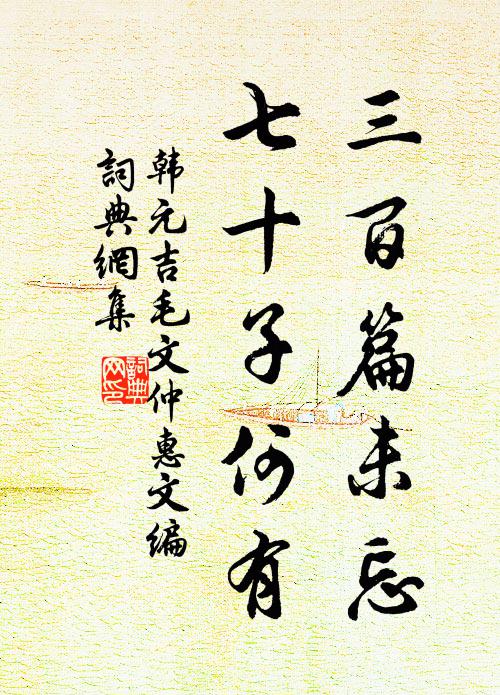 三百篇未忘
七十子何有
韩元吉毛文仲惠文编
詞典網集
詞典网印